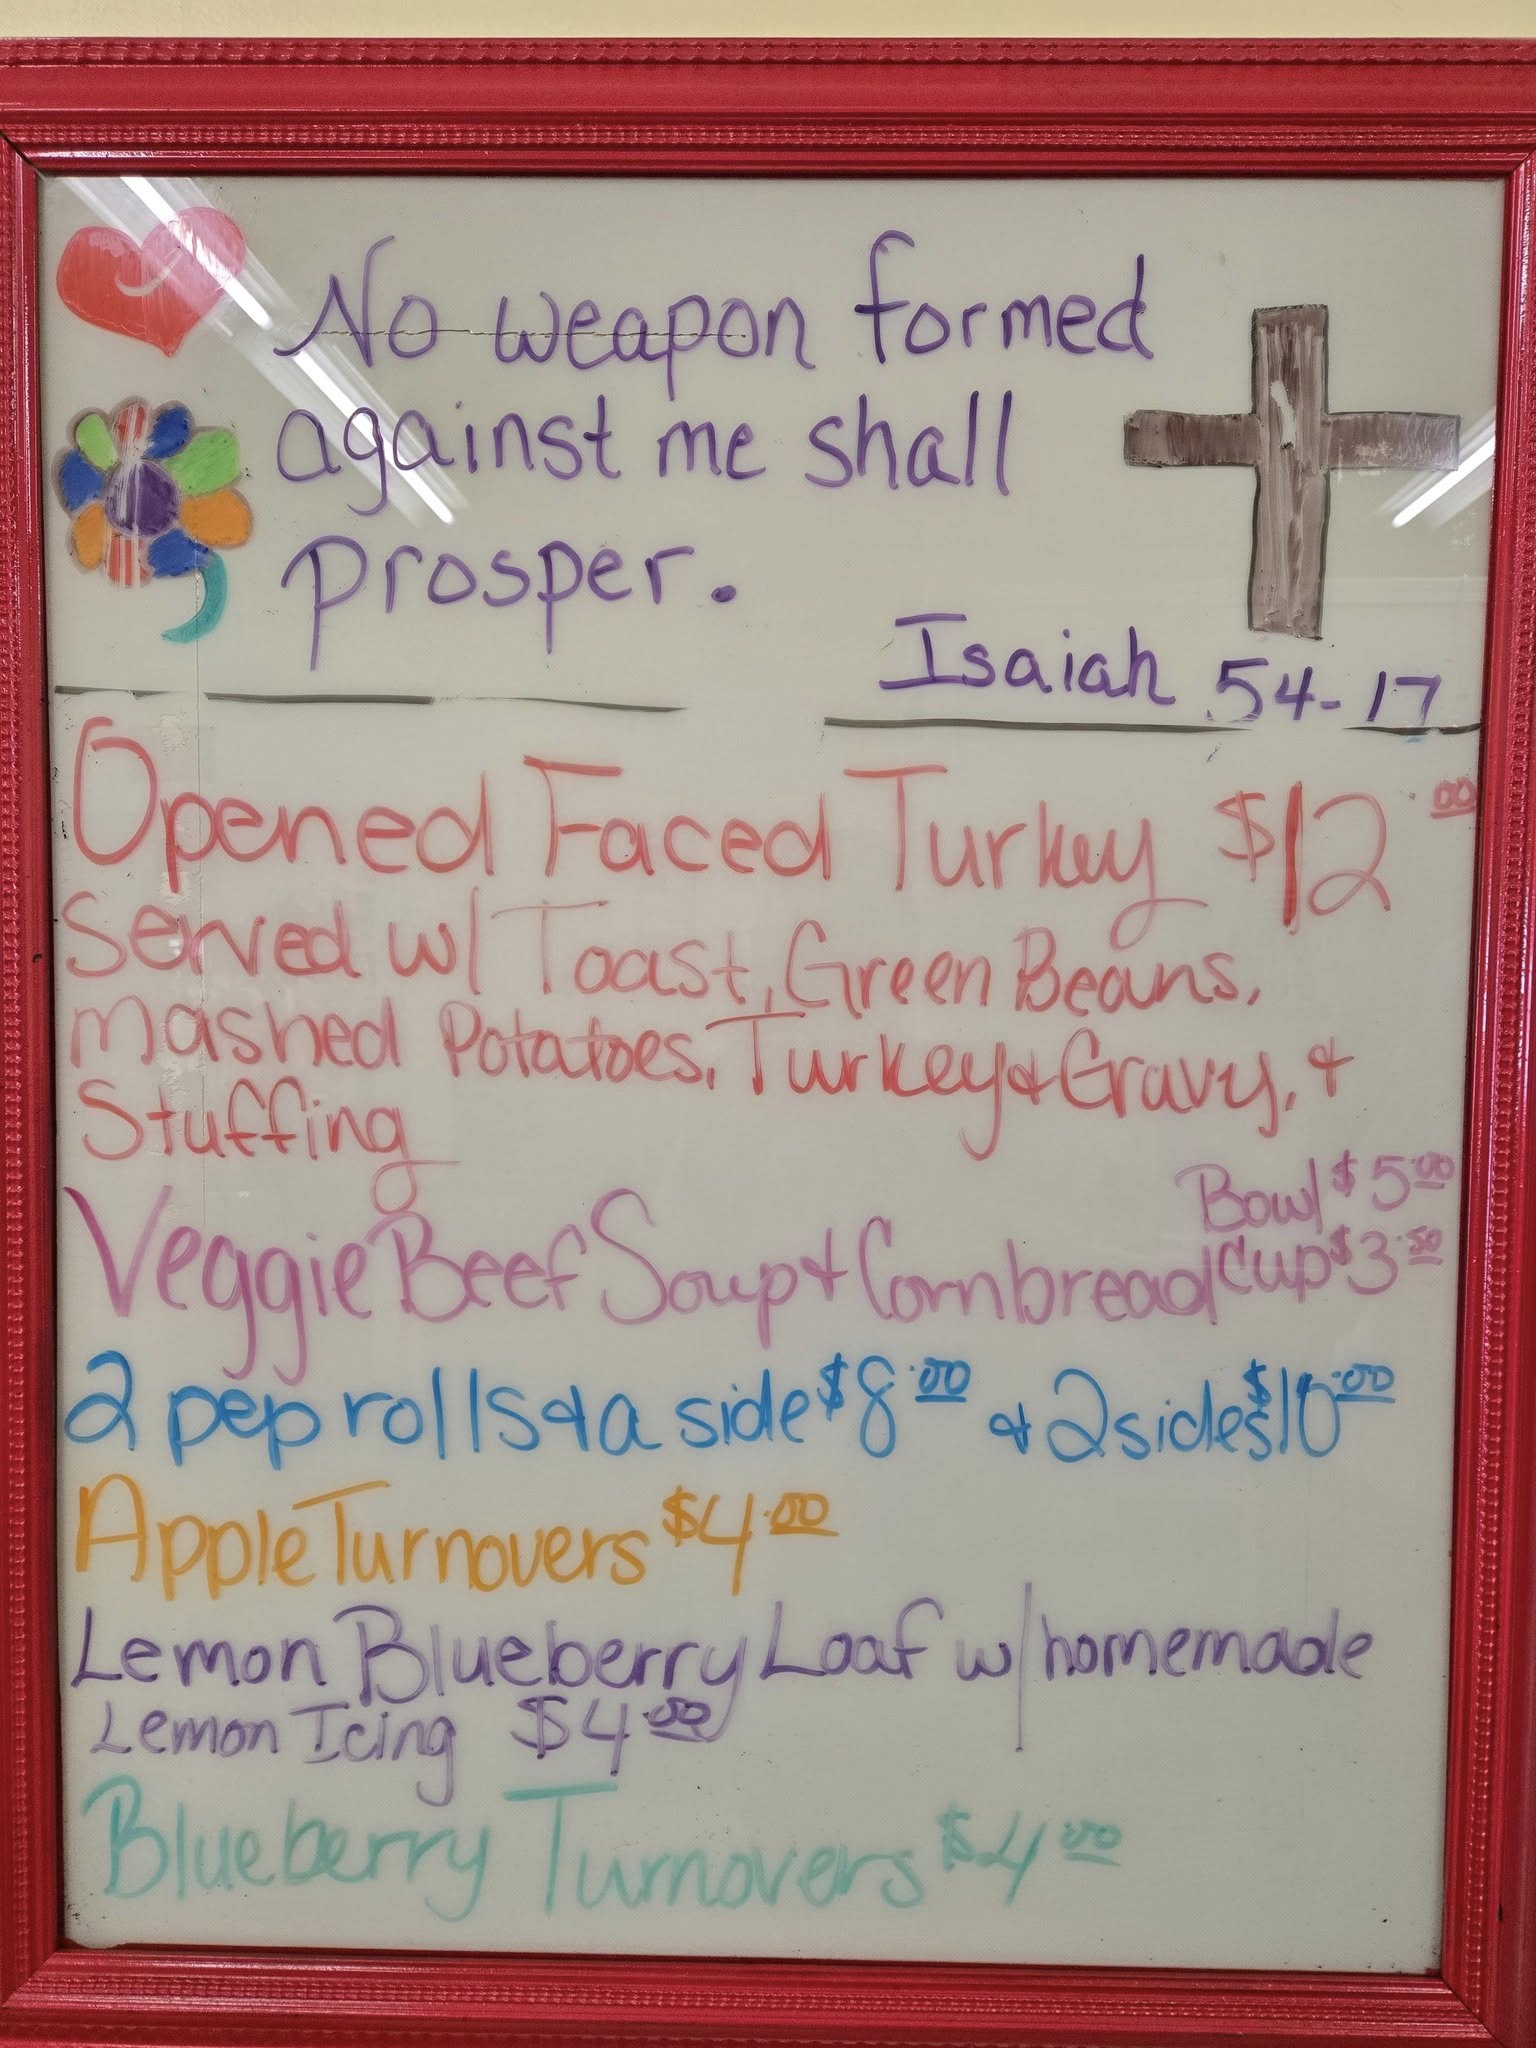 No weapon formed
against me shall
prosper.
Isaiah 54-17
Opened Faced Turkey $12.00
Served w/ Toast, Green Beans,
mashed Potatoes, Turkey & Gravy, &
Stuffing
Bowl $5.00
Veggie Beef Soup & Cornbread Cup $3.50
2 pep rolls & a side $8.00 & 2 sides $10.00
Apple Turnovers $4.00
Lemon Blueberry Loaf w/ homemade
Lemon Icing $4.00
Blueberry Turnovers $4.00